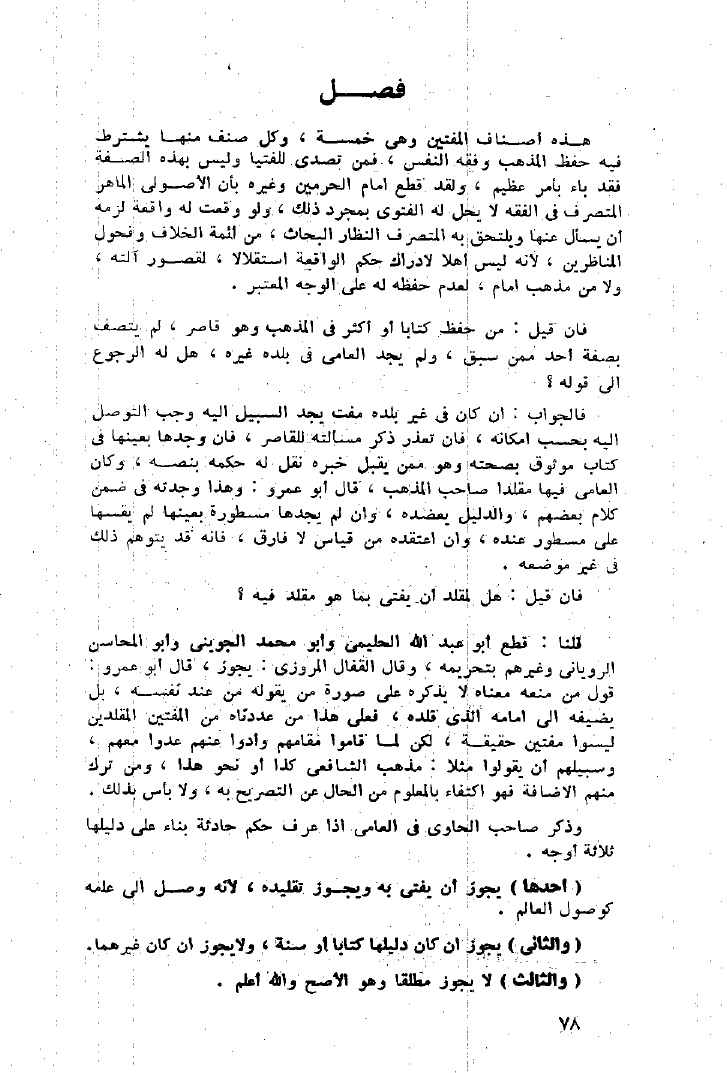 فصــــل
هــذه أصــناف المفتين وهى خمســة ، وكل صنف منهـا يشــترط
فيه حفظ المذهب وفقه النفس ، فمن تصدى للفتيا وليس بهذه الصــفة
فقد باء بأمر عظيم ، ولقد قطع امام الحرمين وغيره بأن الأصــولى الماهر
المتصرف فى الفقه لا يحل له الفتوى بمجرد ذلك ، ولو وقعت له واقعة لزمه
أن يسأل عنها ويلتحق به المتصرف النظار البحاث ، من أئمة الخلاف وفحول
المناظرين ، لأنه ليس أهلا لادراك حكم الواقعة استقلالا ، لقصــور آلته ،
ولا من مذهب امام ، لعدم حفظه له على الوجه المعتبر .
فان قيل : من حفظ كتابا أو أكثر فى المذهب وهو قاصر ، لم يتصف
بصفة أحد ممن سبق ، ولم يجد العامى فى بلده غيره ، هل له الرجوع
الى قوله ؟
فالجواب : ان كان فى غير بلده مفت يجد السبيل اليه وجب التوصل
اليه بحسب امكانه ، فان تعذر ذكر مسألته للقاصر ، فان وجدها بعينها فى
كتاب موثوق بصحته وهو ممن يقبل خبره نقل له حكمه بنصــه ، وكان
العامى فيها مقلدا صاحب المذهب ، قال أبو عمرو : وهذا وجدته فى ضمن
كلام بعضهم ، والدليل يعضده ، وان لم يجدها مسطورة بعينها لم يقسها
على مسطور عنده ، وان اعتقده من قياس لا فارق ، فانه قد يتوهم ذلك
فى غير موضعه .
فان قيل : هل لمقلد أن يفتى بما هو مقلد فيه ؟
قلنا : قطع أبو عبد الله الحليمى وأبو محمد الجوينى وأبو المحاسن
الرويانى وغيرهم بتحريمه ، وقال القفال المروزى : يجوز ، قال أبو عمرو :
قول من منعه معناه لا يذكره على صورة من يقوله من عند نفســه ، بل
يضيفه الى امامه الذى قلده ، فعلى هذا من عددناه من المفتين المقلدين
ليسوا مفتين حقيقــة ، لكن لمــا قاموا مقامهم وأدوا عنهم عدوا معهم ،
وسبيلهم أن يقولوا مثلا : مذهب الشافعى كذا أو نحو هذا ، ومن ترك
منهم الاضافة فهو اكتفاء بالمعلوم من الحال عن التصريح به ، ولا بأس بذلك .
وذكر صاحب الحاوى فى العامى اذا عرف حكم حادثة بناء على دليلها
ثلاثة أوجه .
( أحدها ) يجوز أن يفتى به ويجــوز تقليده ، لأنه وصــل الى علمه
كوصول العالم .
( والثانى ) يجوز ان كان دليلها كتابا أو سنة ، ولايجوز ان كان غيرهما.
( والثالث ) لا يجوز مطلقا وهو الأصح والله أعلم .
٧٨